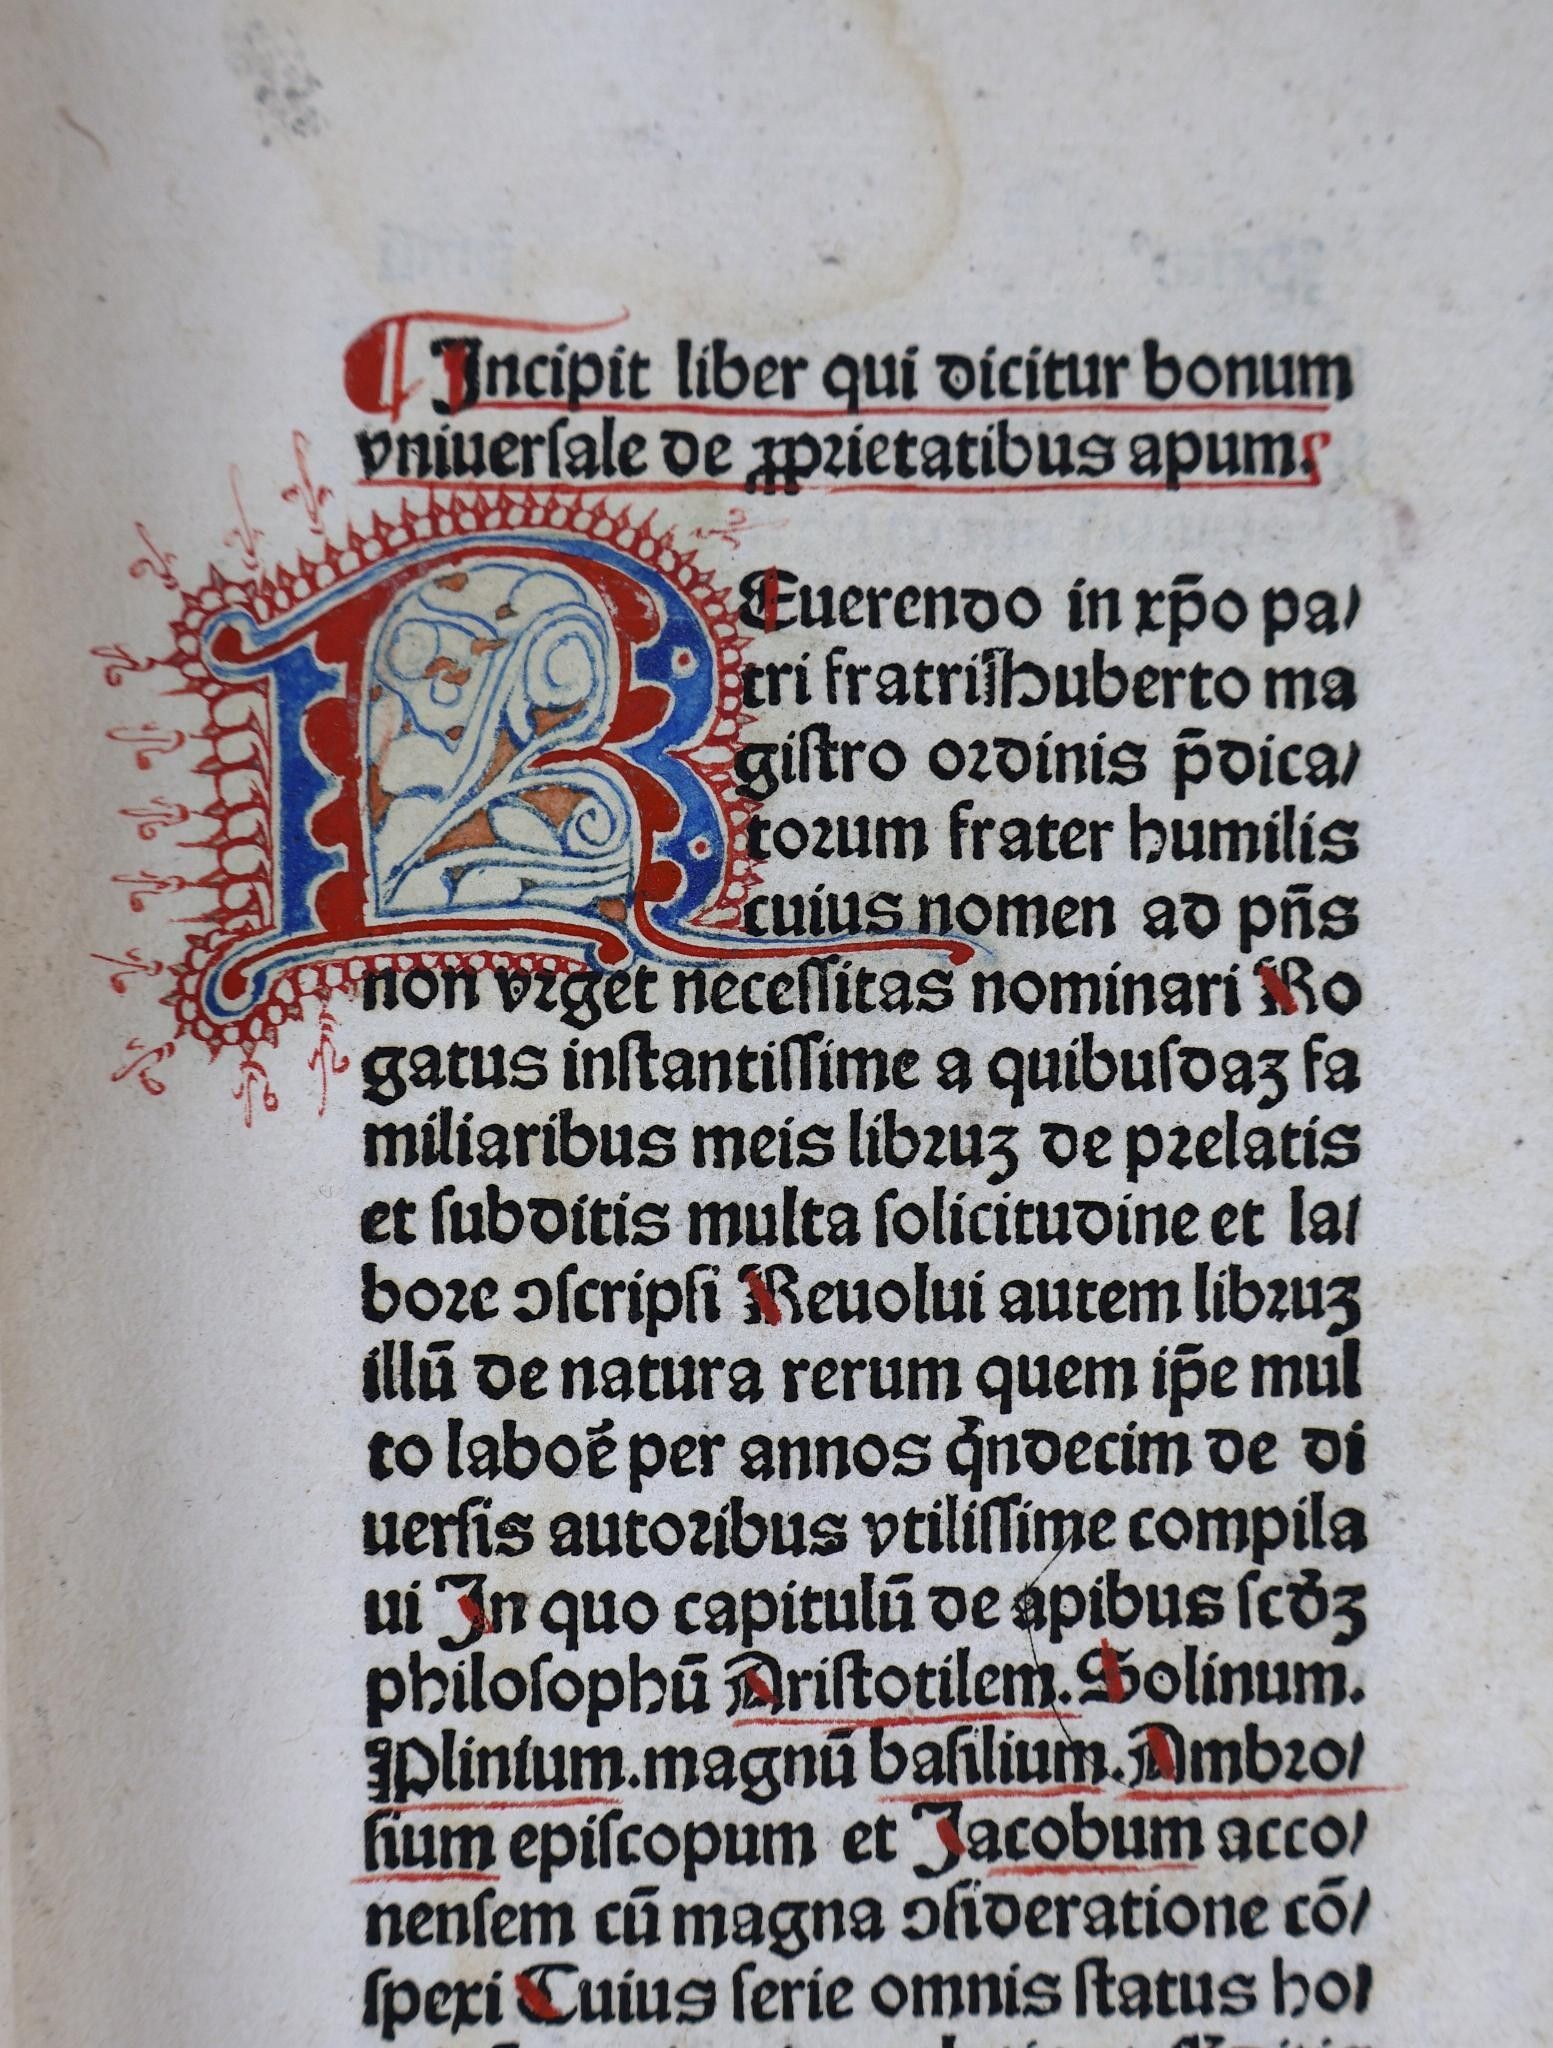 ¶ Incipit liber qui dicitur bonum
vniuerſale de ꝓprietatibus apum.
REuerendo in xp̄o pa/
tri fratri Huberto ma
giſtro ordinis p̄dica/
torum frater humilis
cuius nomen ad pn̄s
non vrget neceſſitas nominari Ro
gatus inſtantiſſime a quibuſdaꝫ fa
miliaribus meis libruꝫ de prelatis
et ſubditis multa ſolicitudine et la/
bore ↄſcripſi Reuolui autem libruꝫ
illū de natura rerum quem ip̄e mul
to laboē per annos qͥndecim de di
uerſis autoribus vtiliſſime compila
ui In quo capitulū de apibus ſcd̄ꝫ
philoſophū Ariſtotilem. Solinum.
Plinium. magnū baſilium. Ambro/
ſium epiſcopum et Jacobum acco/
nenſem cū magna ↄſideratione cō/
ſpexi Cuius ſerie omnis ſtatus ho/